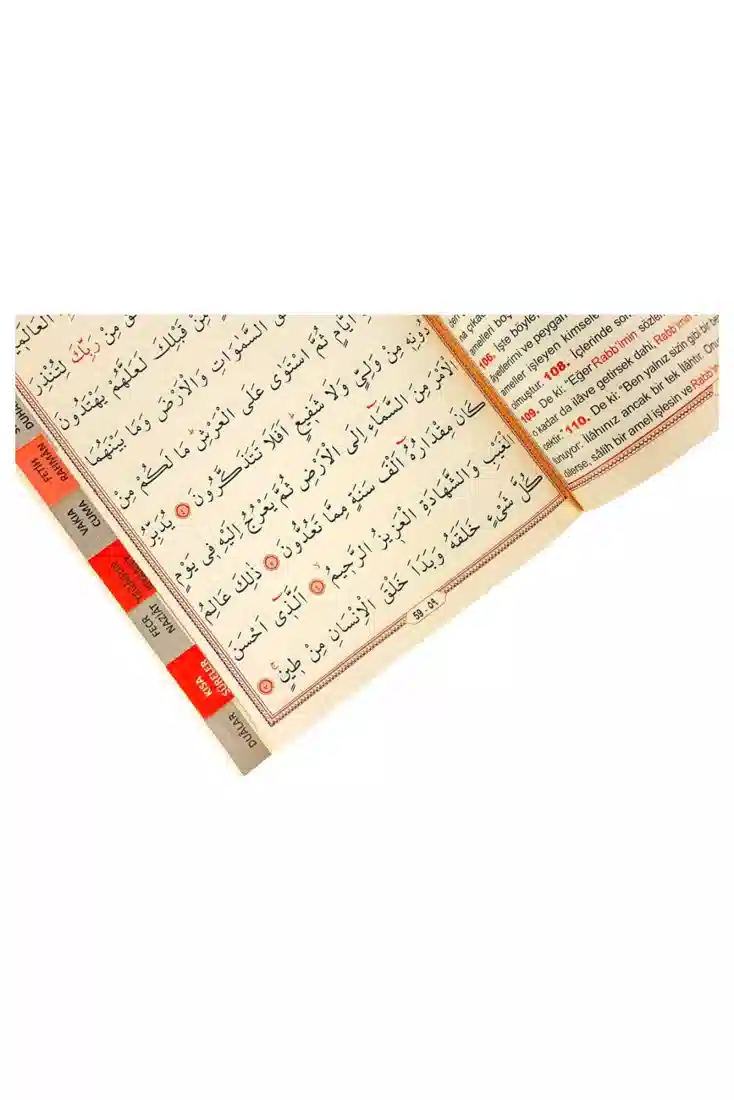 مِنْ رَبِّكَ لِتُنْذِرَ
مِنْ قَبْلِكَ لَعَلَّهُمْ يَهْتَدُونَ
السَّمٰوَاتِ وَالْاَرْضَ وَمَا بَيْنَهُمَا
اَيَّامٍ ثُمَّ اسْتَوٰى عَلَى الْعَرْشِۜ مَا لَكُمْ مِنْ
دُونِه۪ مِنْ وَلِيٍّ وَلَا شَف۪يعٍۜ اَفَلَا تَتَذَكَّرُونَ ﴿٤﴾ يُدَبِّرُ
الْاَمْرَ مِنَ السَّمَٓاءِ اِلَى الْاَرْضِ ثُمَّ يَعْرُجُ اِلَيْهِ ف۪ي يَوْمٍ
كَانَ مِقْدَارُهُٓ اَلْفَ سَنَةٍ مِمَّا تَعُدُّونَ ﴿٥﴾ ذٰلِكَ عَالِمُ
الْغَيْبِ وَالشَّهَادَةِ الْعَز۪يزُ الرَّح۪يمُۙ ﴿٦﴾ اَلَّذ۪ٓي اَحْسَنَ
كُلَّ شَيْءٍ خَلَقَهُ وَبَدَاَ خَلْقَ الْاِنْسَانِ مِنْ ط۪ينٍۚ ﴿٧﴾
59 - ٥٩
DUHAN
FETİH
RAHMÂN
VAKIA
CUMA
FECR
NAZİÂT
KISA
SÛRELER
DUALAR
106. İşte böyle
âyetlerimi ve peygam
ameller işleyen kimsele
olmuştur. 108. İçlerinde son
109. De ki: "Eğer Rabb'imin sözleri
o kadar da ilâve getirsek dahi, Rabb'imin
110. De ki: "Ben yalnız sizin gibi bir be
lunuyor. İlâhınız, ancak bir tek ilâhtır. Onu
dilerse, sâlih bir amel işlesin ve Rabb'i